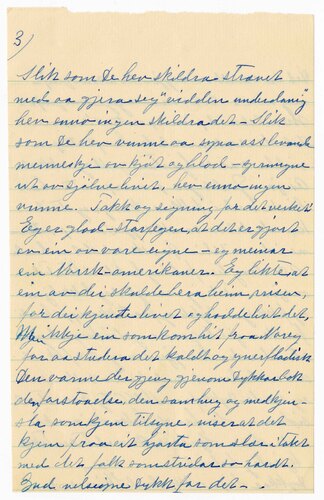 3)
Slik som De hev skildra strævet
med aa gjera seg "vidden underdanig"
hev enno ingen skildra det - Slik
som De hev vunne aa syna oss levande
menneskje ov kjøt og blod - sprungne
ut ov sjølve livet, hev enno ingen
vunne. Takk og signing for det verket!
Eg er glad - for det er gjort
av ein ov vare eigne - eg meinar
ein Norsk-amerikaner. Eg likte, at
ein av dei skulde bera heim prisen,
for dei kjende livet og hadde livt det,
ikkje ein som kom hit fraa Noreg
for aa studera det kaldt og yverfladisk
Den varme der gjeng gjenom Dykkar bok
den forstaaelse, den samhug og medkjen-
sla som kjem tilsyne, viser at det
kjem fraa eit hjarta som slær i takt
med det folk som stridar so hardt.
Gud velsigne Dykk for det -